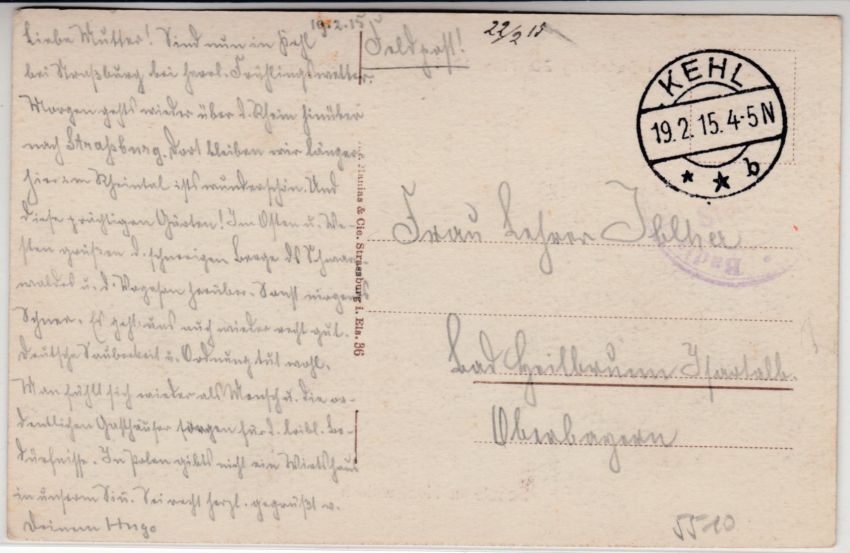 19.2.15
Liebe Mutter! Sind nun in Kehl
bei Straßburg bei herrl. Frühlingswetter.
Morgen gehts wieder über d. Rhein hinüber
nach Strassburg. Dort bleiben wir länger
hier im Rheintal ists wunderschön. Und
diese prächtigen Gärten! Im Osten u. We-
sten grüßen d. schneeigen Berge ds Schwarz
waldes u. d. Vogesen herüber. Sonst nirgens
Schnee. Es geht uns auch wieder recht gut.
Deutsche Sauberkeit u. Ordnung tut wohl.
Man fühlt sich wieder als Mensch u. die or-
dentlichen Gasthäuser sorgen für d. leibl. Be-
dürfnisse. In Polen gibts nicht ein Wirtshaus
in unserm Sin. Sei recht herzl. gegrüßt v.
Deinem Hugo
& Cie. Strassburg i. Els. 36
Feldpost!
22/2 15
KEHL
19.2.15.4-5N
* * b
Frau Lehrer
Bad Heilbrunn Isartalb.
Oberbayern
5510